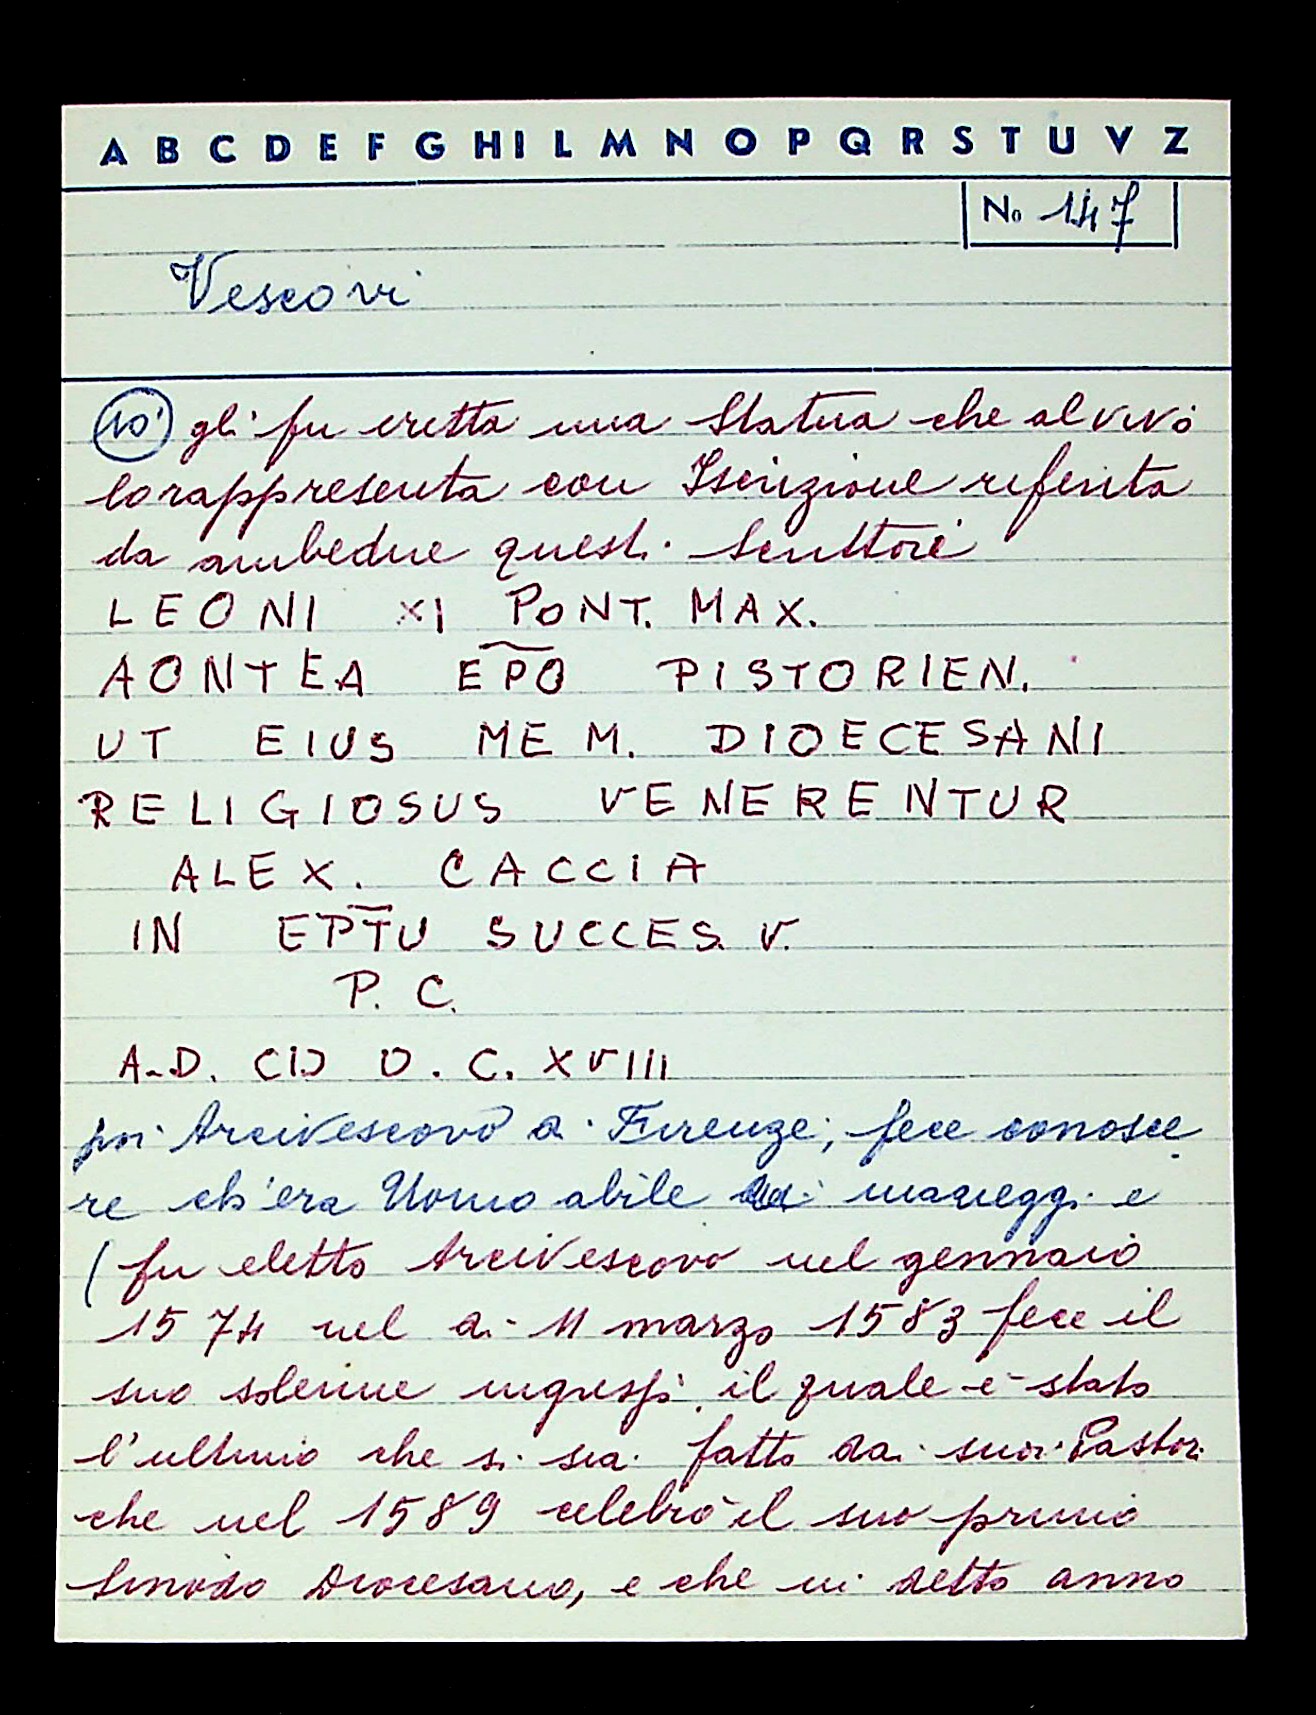 A B C D E F G H I L M N O P Q R S T U V Z
No 147
Vescovi
10 gli fu eretta una Statua che al vivo
lo rappresenta con Iscrizione riferita
da ambedue questi Scrittori
LEONI XI PONT. MAX.
AONTEA EPO PISTORIEN.
UT EIUS MEM. DIOECESANI
RELIGIOSUS VENERENTUR
ALEX. CACCIA
IN EPTU SUCCES. V.
P. C.
A.D. CIↃ O. C. XVIII
poi Arcivescovo di Firenze, fece conosce
re ch'era Uomo abile maneggi e
(fu eletto Arcivescovo nel gennaio
1574 nel di 11 marzo 1583 fece il
suo solenne ingresso, il quale è stato
l'ultimo che si sia fatto dai suoi Pastori
che nel 1589 celebrò il suo primo
Sinodo Diocesano, e che in detto anno